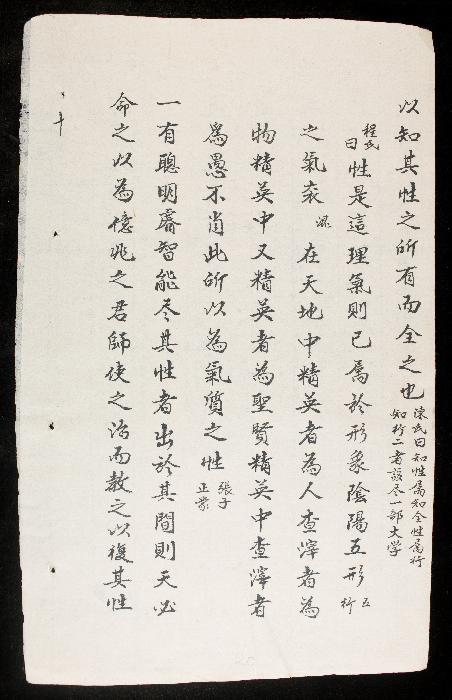 以知其性之所有而全之也
陳氏曰知性属知全性属行
知行二者該尽一部大学
程氏曰性是這理氣則已属於形象陰陽五形五行
之氣衮滚在天地中精英者為人查滓者為
物精英中又精英者為聖賢精英中查滓者
為愚不肖此所以為氣質之性張子正蒙
一有聰明睿智能尽其性者出於其間則天必
命之以為億兆之君師使之治而教之以復其性
十